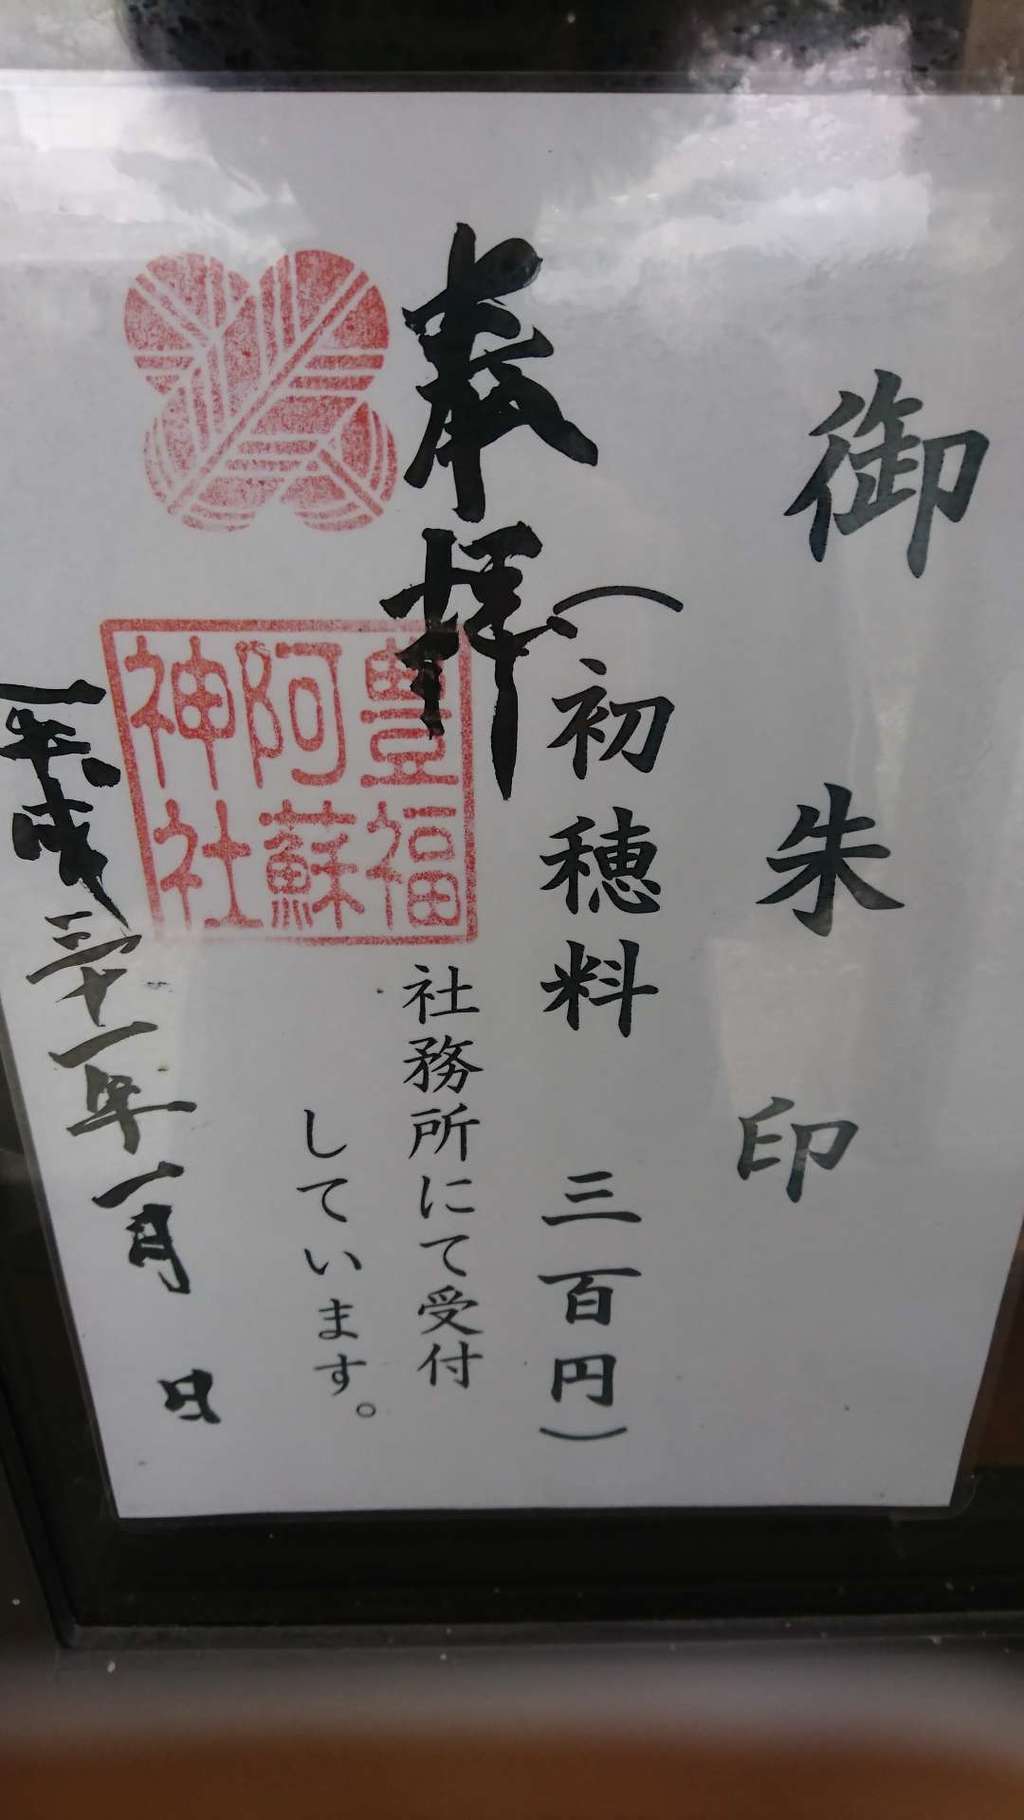 御朱印
（初穂料 三百円）
奉拝
社務所にて受付
しています。
豊福
阿蘇
神社
平成三十一年一月 日